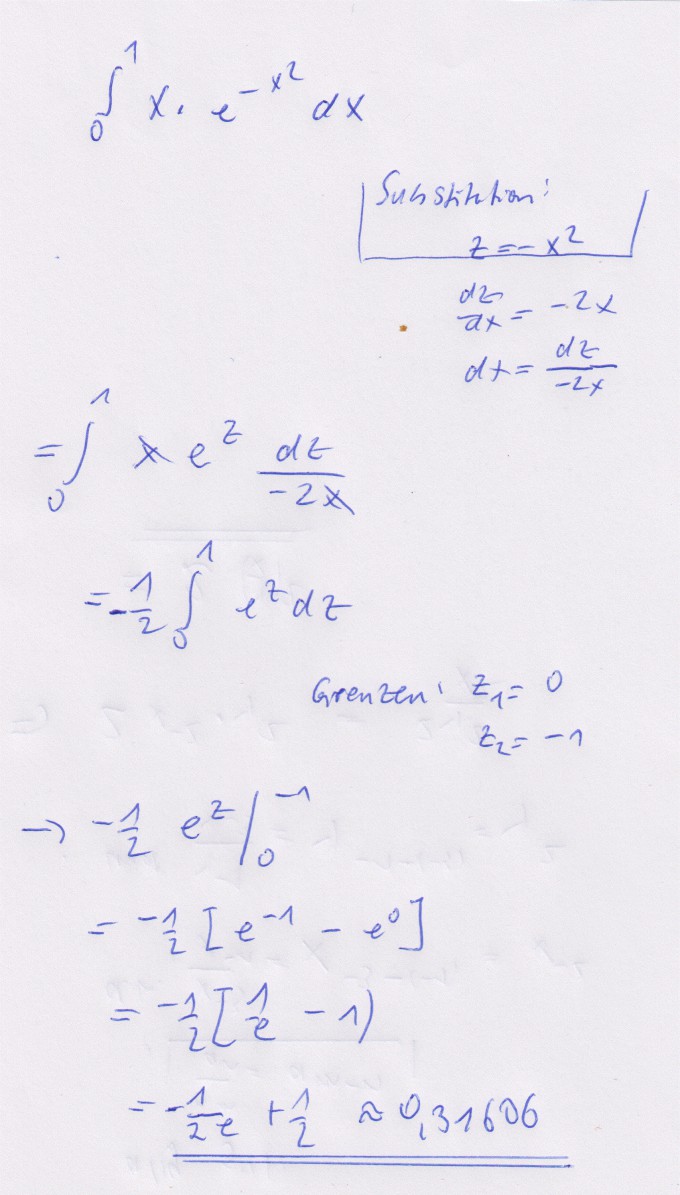 ∫₀¹ x · e^(-x²) dx
Substitution:
z = -x²
dz/dx = -2x
dx = dz/-2x
= ∫₀¹ x e^z dz/-2x
= -1/2 ∫₀¹ e^z dz
Grenzen: z₁ = 0
z₂ = -1
→ -1/2 e^z |₀^-1
= -1/2 [e^-1 - e^0]
= -1/2 [1/e - 1)
= -1/2e + 1/2 ≈ 0,31606